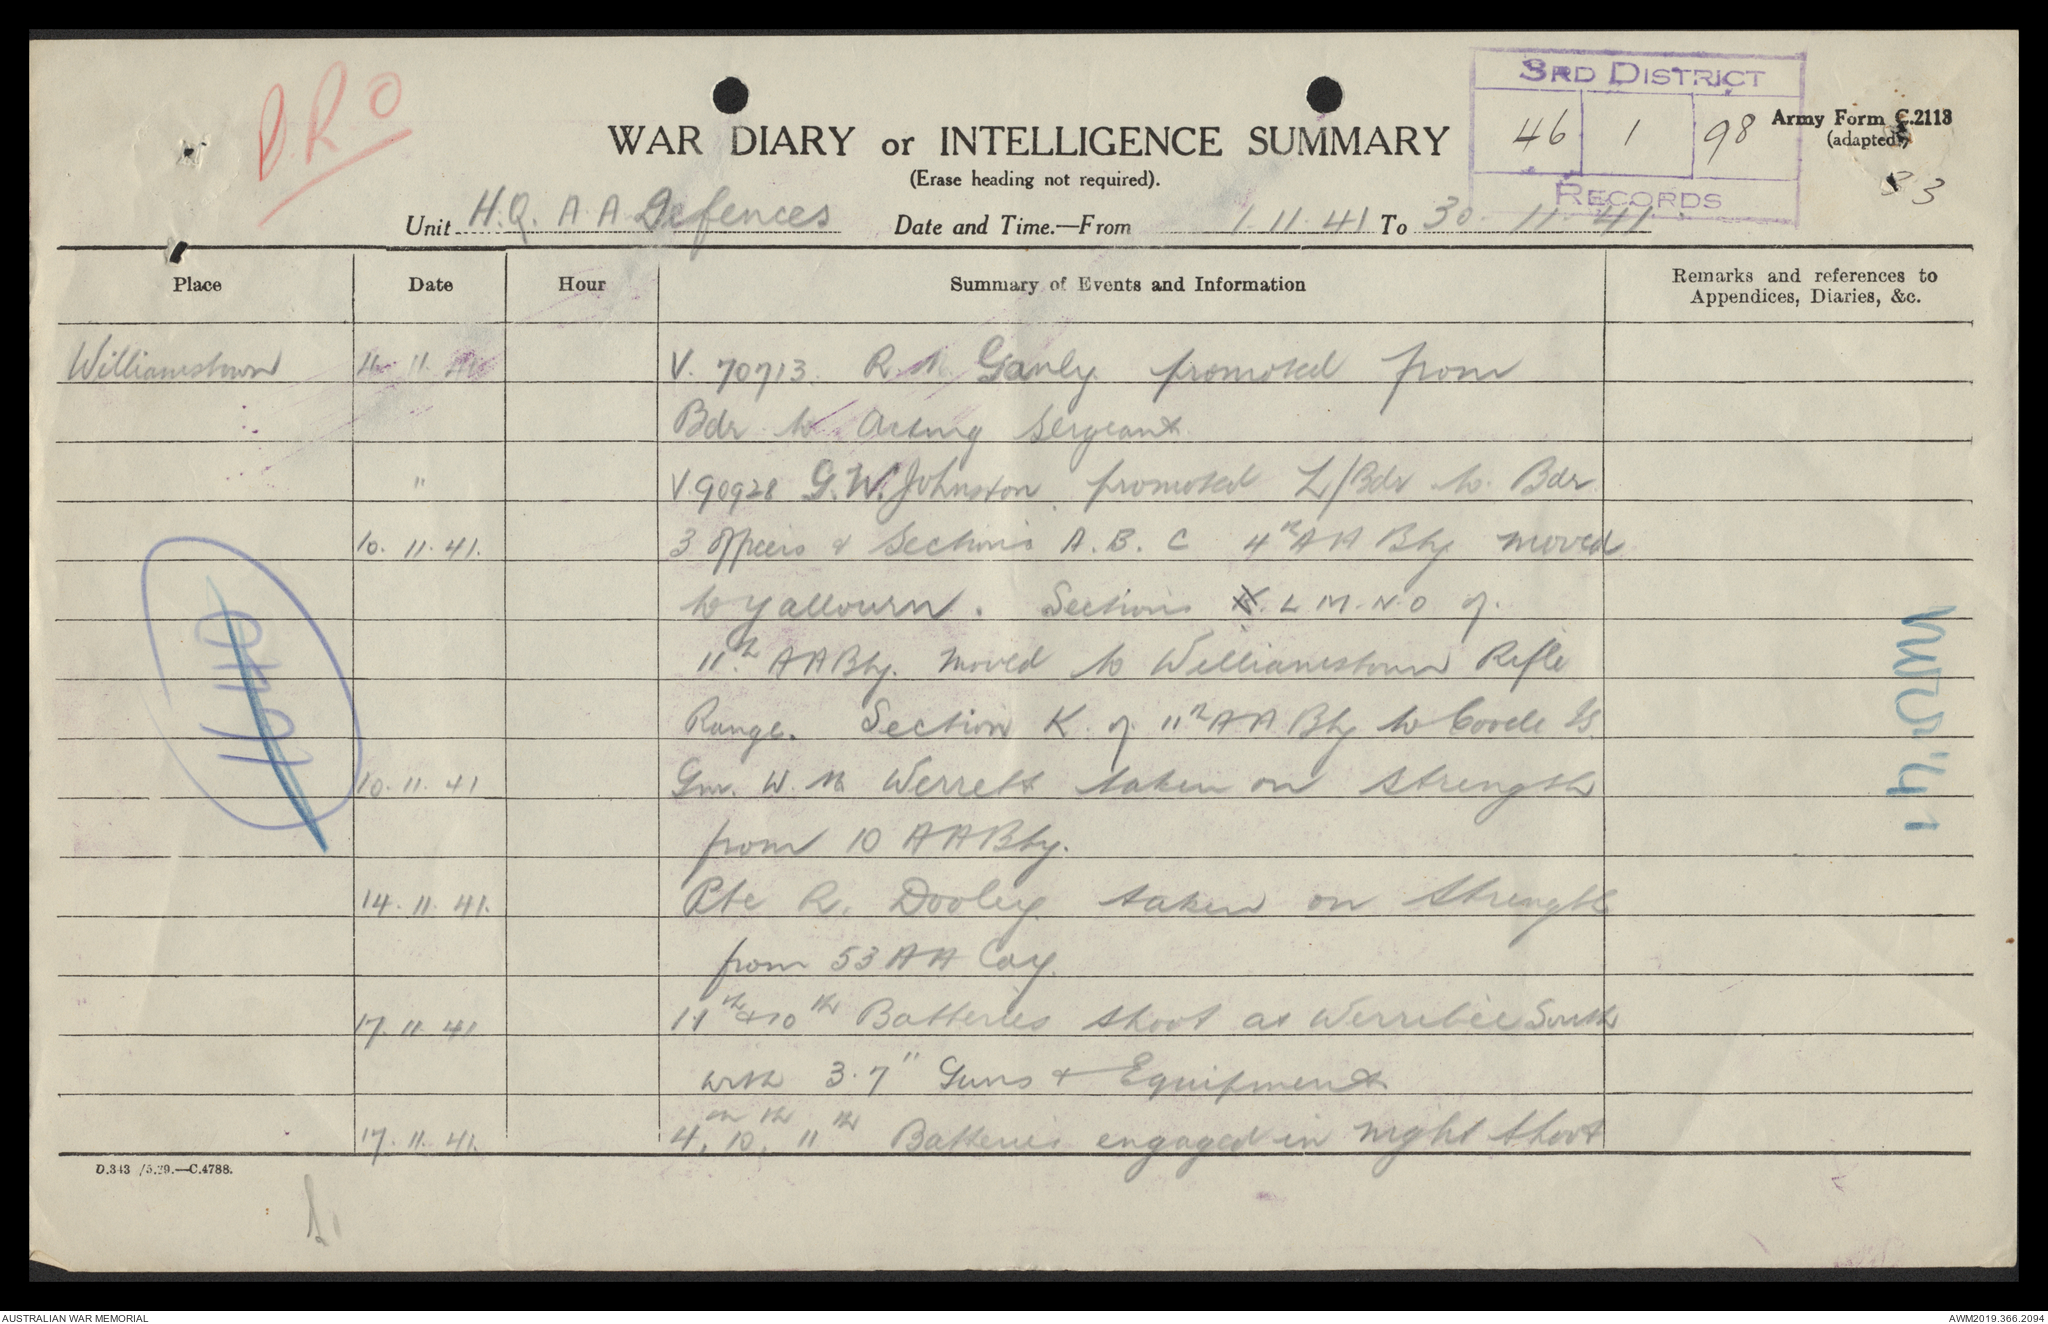 DRO
3RD DISTRICT
46 1 98
RECORDS
WAR DIARY or INTELLIGENCE SUMMARY
(Erase heading not required).
Army Form C.2118
(adapted)
33
Unit H.Q. A A Defences Date and Time.—From 1.11.41 To 30.11.41
Place Date Hour Summary of Events and Information Remarks and references to
Appendices, Diaries, &c.
Williamstown 11.41 V. 70713. R Ganly promoted from
Bdr to Acting Sergeant
" V 90928 G.W. Johnston promoted L/Bdr to Bdr
10. 11. 41. 3 Officers & Sections A. B. C 4th AA Bty moved
to Yallourn. Sections L M. N. O of
11th AA Bty. moved to Williamstown Rifle
Range. Section K of 11th AA Bty to Coode Is.
10. 11. 41 Gnr. W. M Werrett taken on strength
from 10 AA Bty.
14. 11. 41. Pte R. Dooley taken on strength
from 53 AA Coy
17. 11. 41 11th & 10th Batteries shoot at Werribee South
with 3.7" Guns & Equipment
17. 11. 41. 4th, 10th, 11th Batteries engaged in night shoot
D.343 /5.29.—C.4788.
AUSTRALIAN WAR MEMORIAL
AWM2019.366.2094